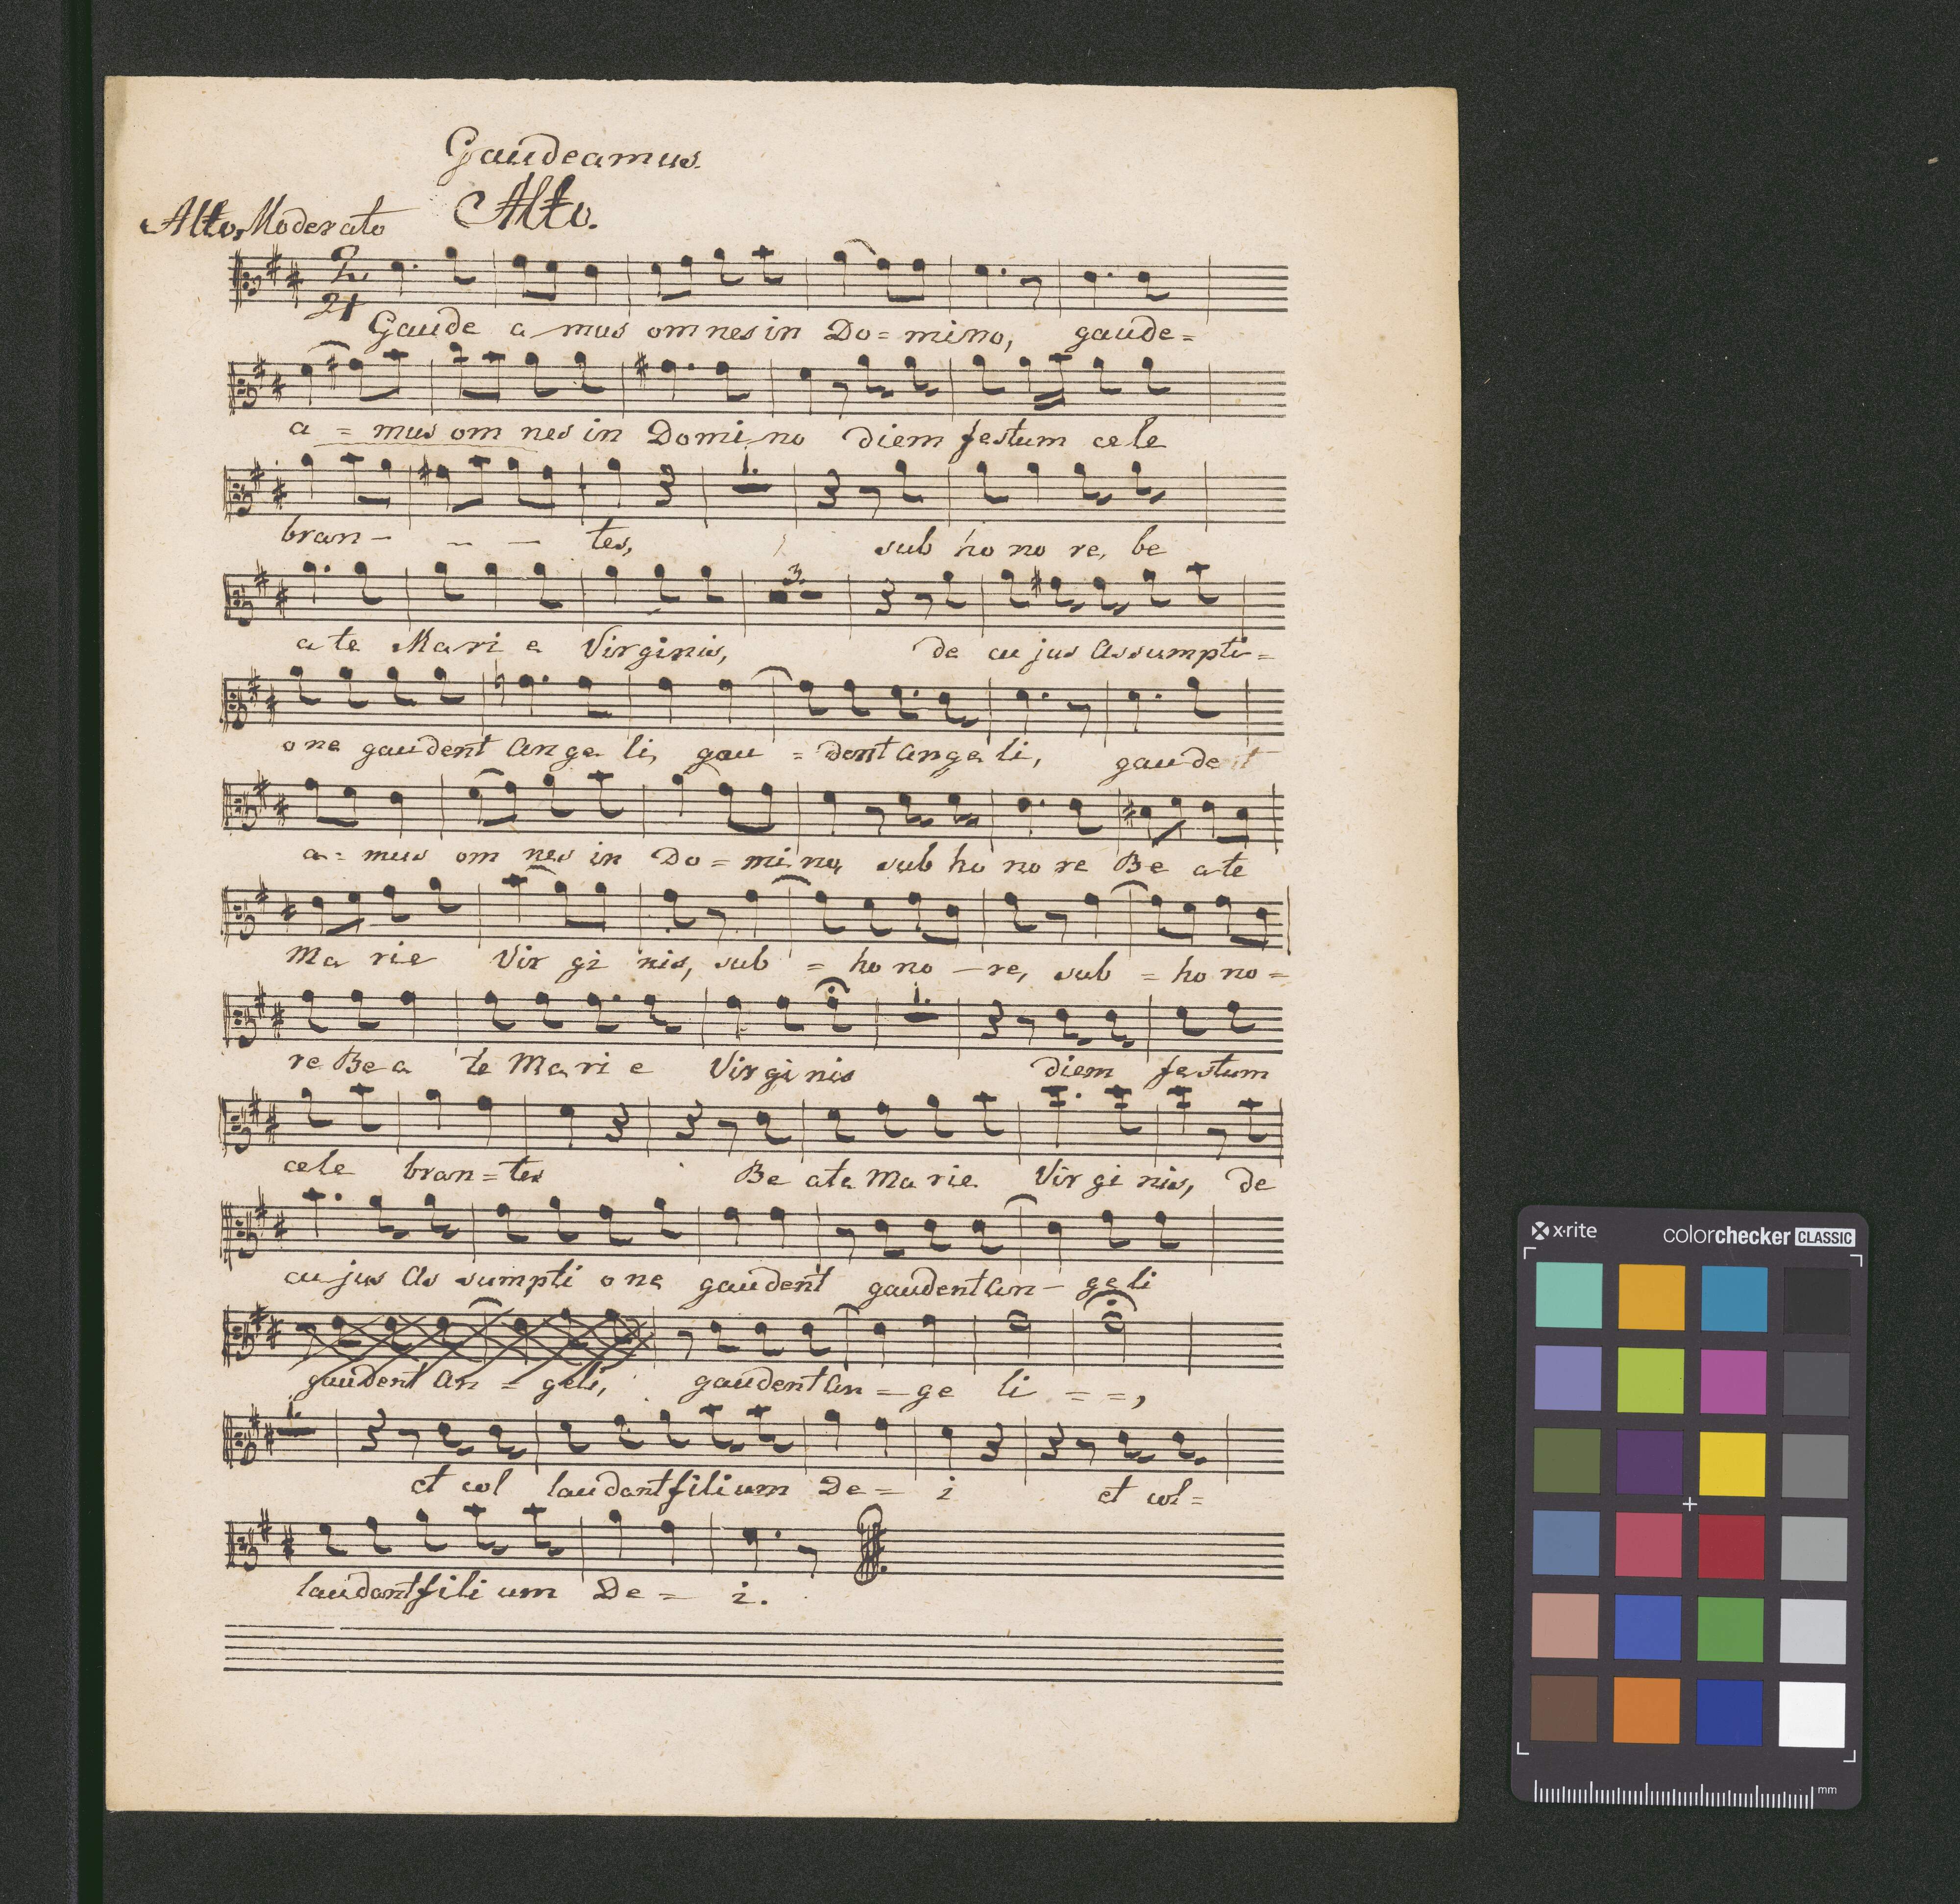 Gaudeamus.
Alto.
Alto, Moderato
2
4
Gaude a mus om nes in Do = mino, gaude =
a = mus om nes in Domi no diem festum cele
1.
bran - - - tes, sub ho no re, be
3.
a te Mari e Virginis, de cu jus Assumpti =
one gaudent Ange li, gau = dent Ange li, gaudent
a = mus om nes in Do = mi no, sub ho no re Be ate
Ma rie Vir gi nis, sub = ho no - re, sub = ho no =
1.
re Be a te Ma ri e Vir gi nis diem festum
cele bran = tes Be ate Ma rie Vir gi nis, de
cu jus As sumpti o ne gaudent gaudent An - ge li
gaudent An = geli, gaudent An = ge li = = ,
1.
et col laudant filium De = i et col =
laudant fili um De = i.
x·rite colorchecker CLASSIC
mm